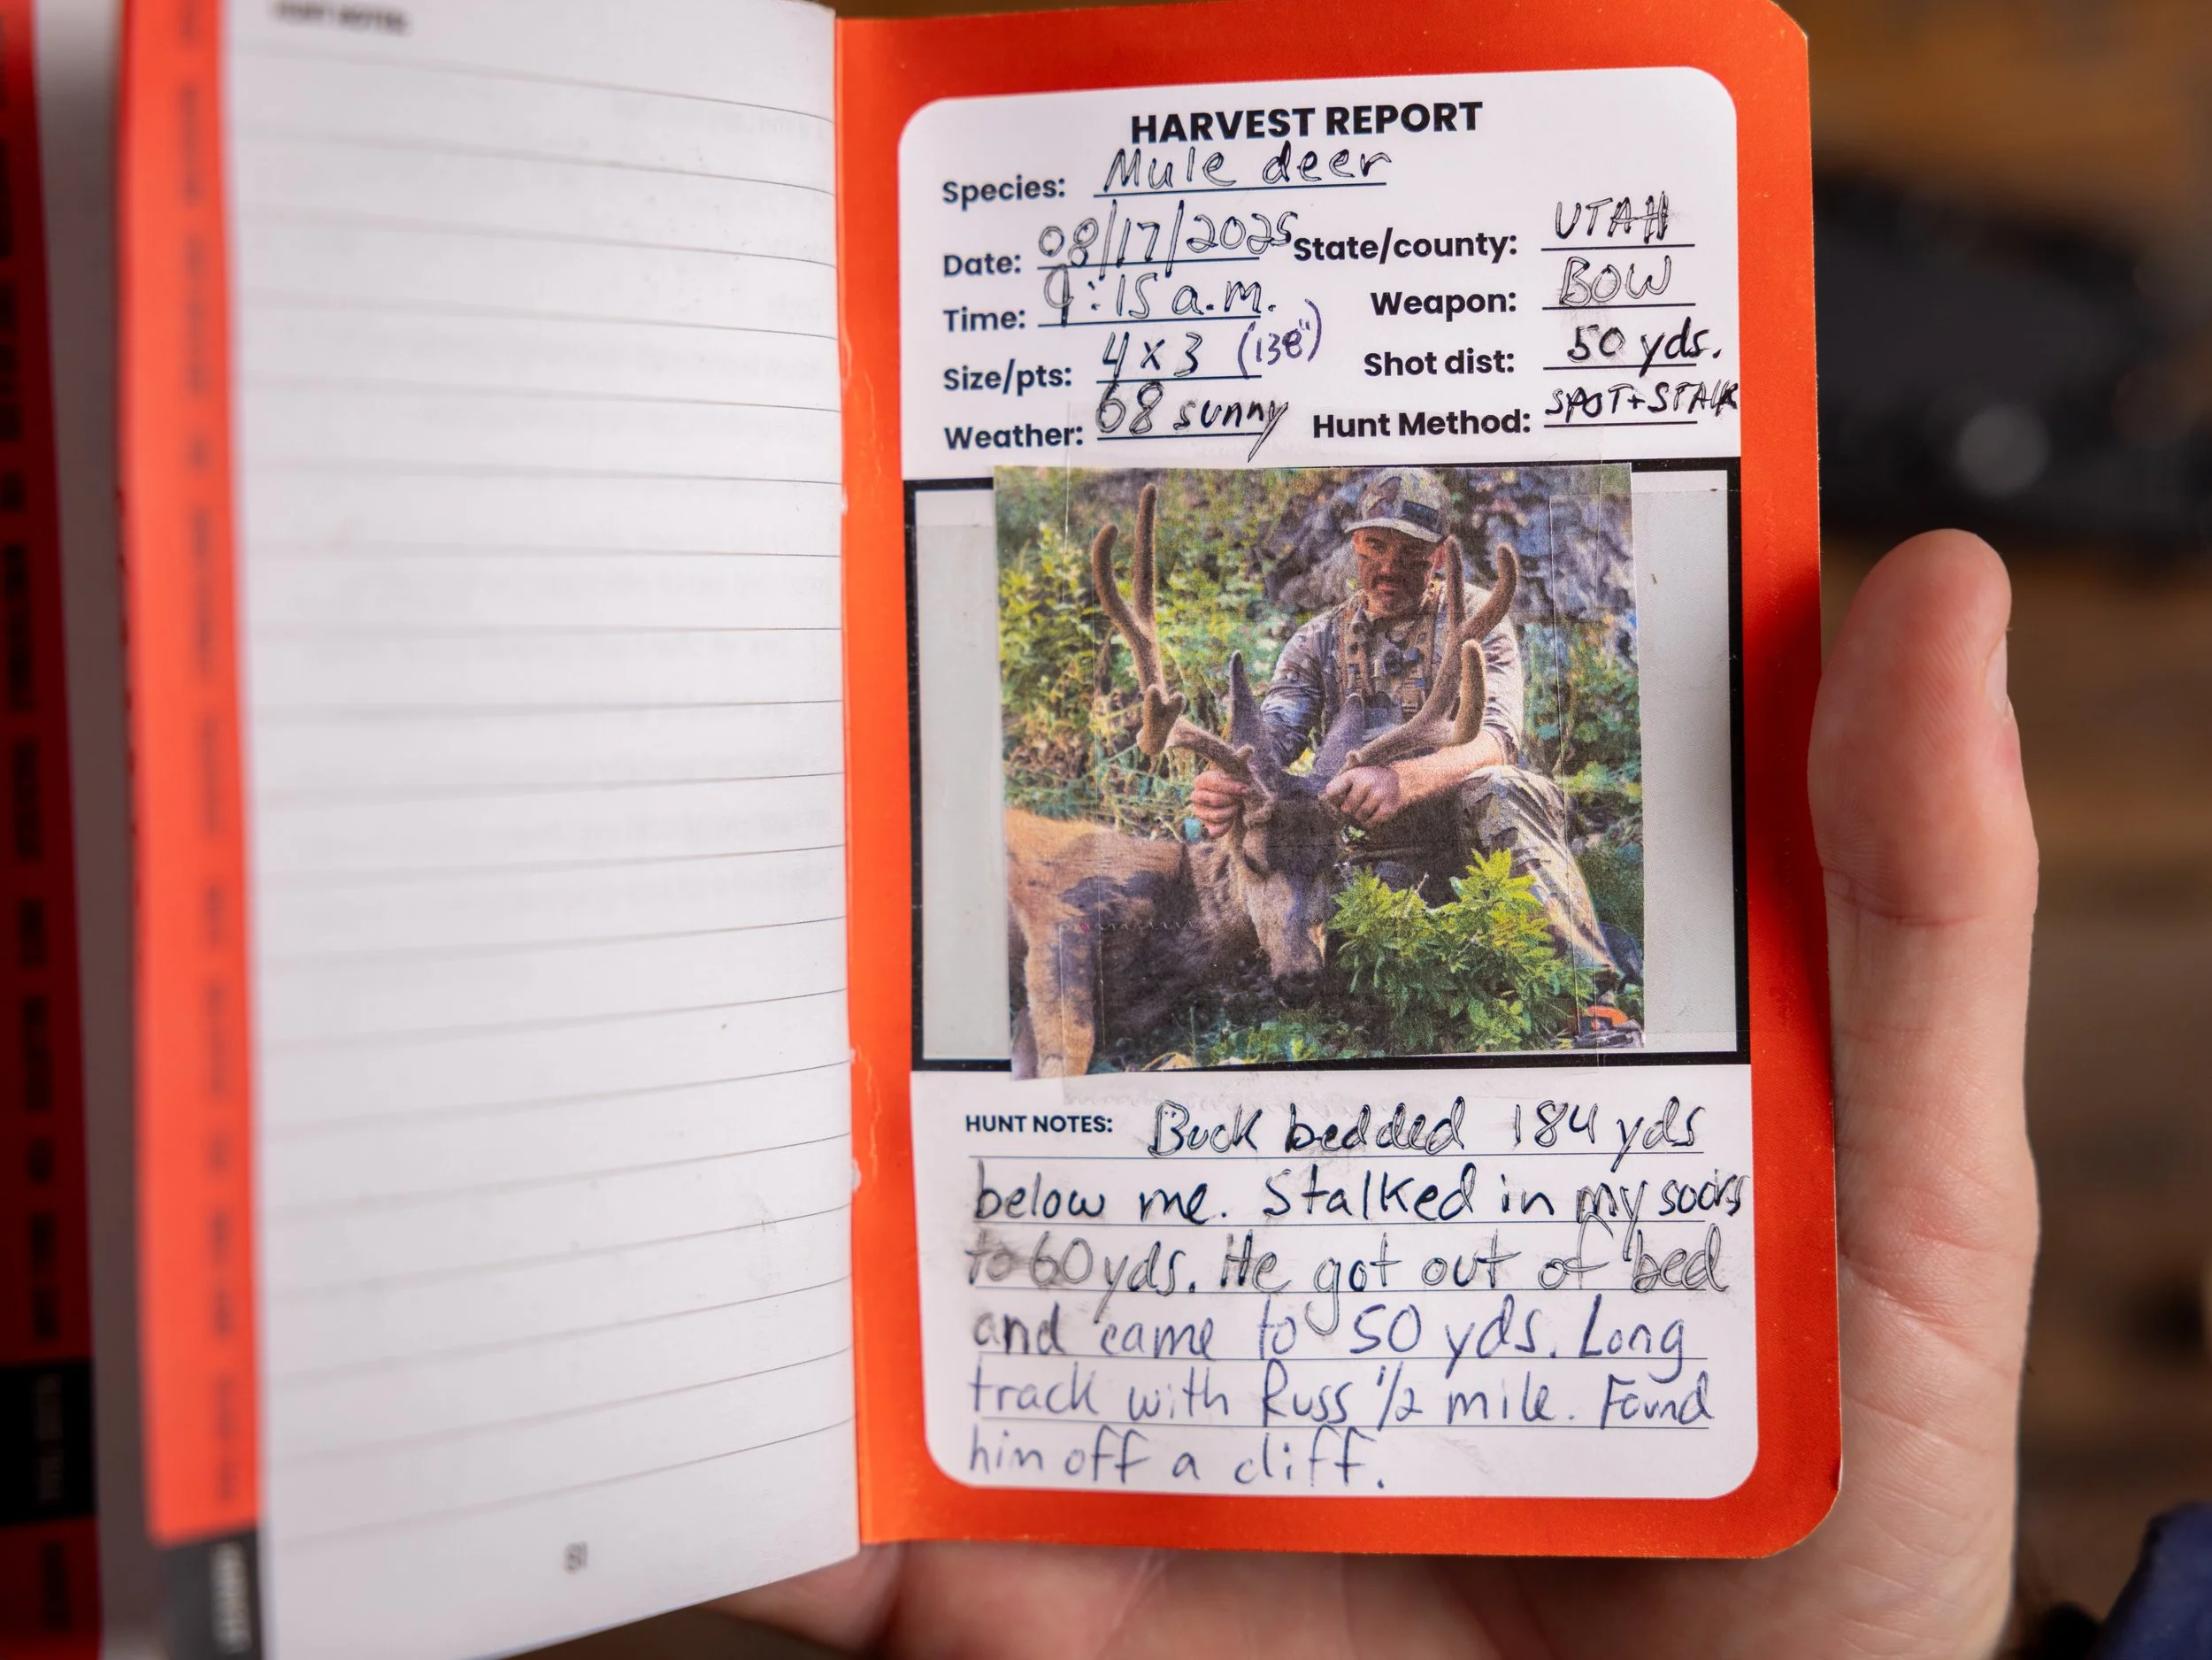 HUNT NOTES:
81
HARVEST REPORT
Species: Mule deer
Date: 08/17/2025 State/county: UTAH
Time: 9:15 a.m. Weapon: BOW
Size/pts: 4x3 (138") Shot dist: 50 yds.
Weather: 68 sunny Hunt Method: SPOT+STALK
HUNT NOTES: Buck bedded 184 yds
below me. Stalked in my socks
to 60 yds. He got out of bed
and came to 50 yds. Long
track with Russ 1/2 mile. Found
him off a cliff.